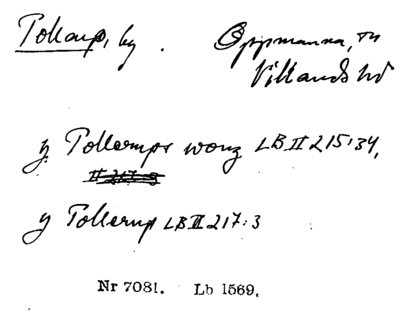 Tollarp, by. Oppmanna, sn
Villands hd
y Tollerups wong LB II 215:34,
II 217:3
y Tollerup LB II 217:3
Nr 7081. Lb 1569.